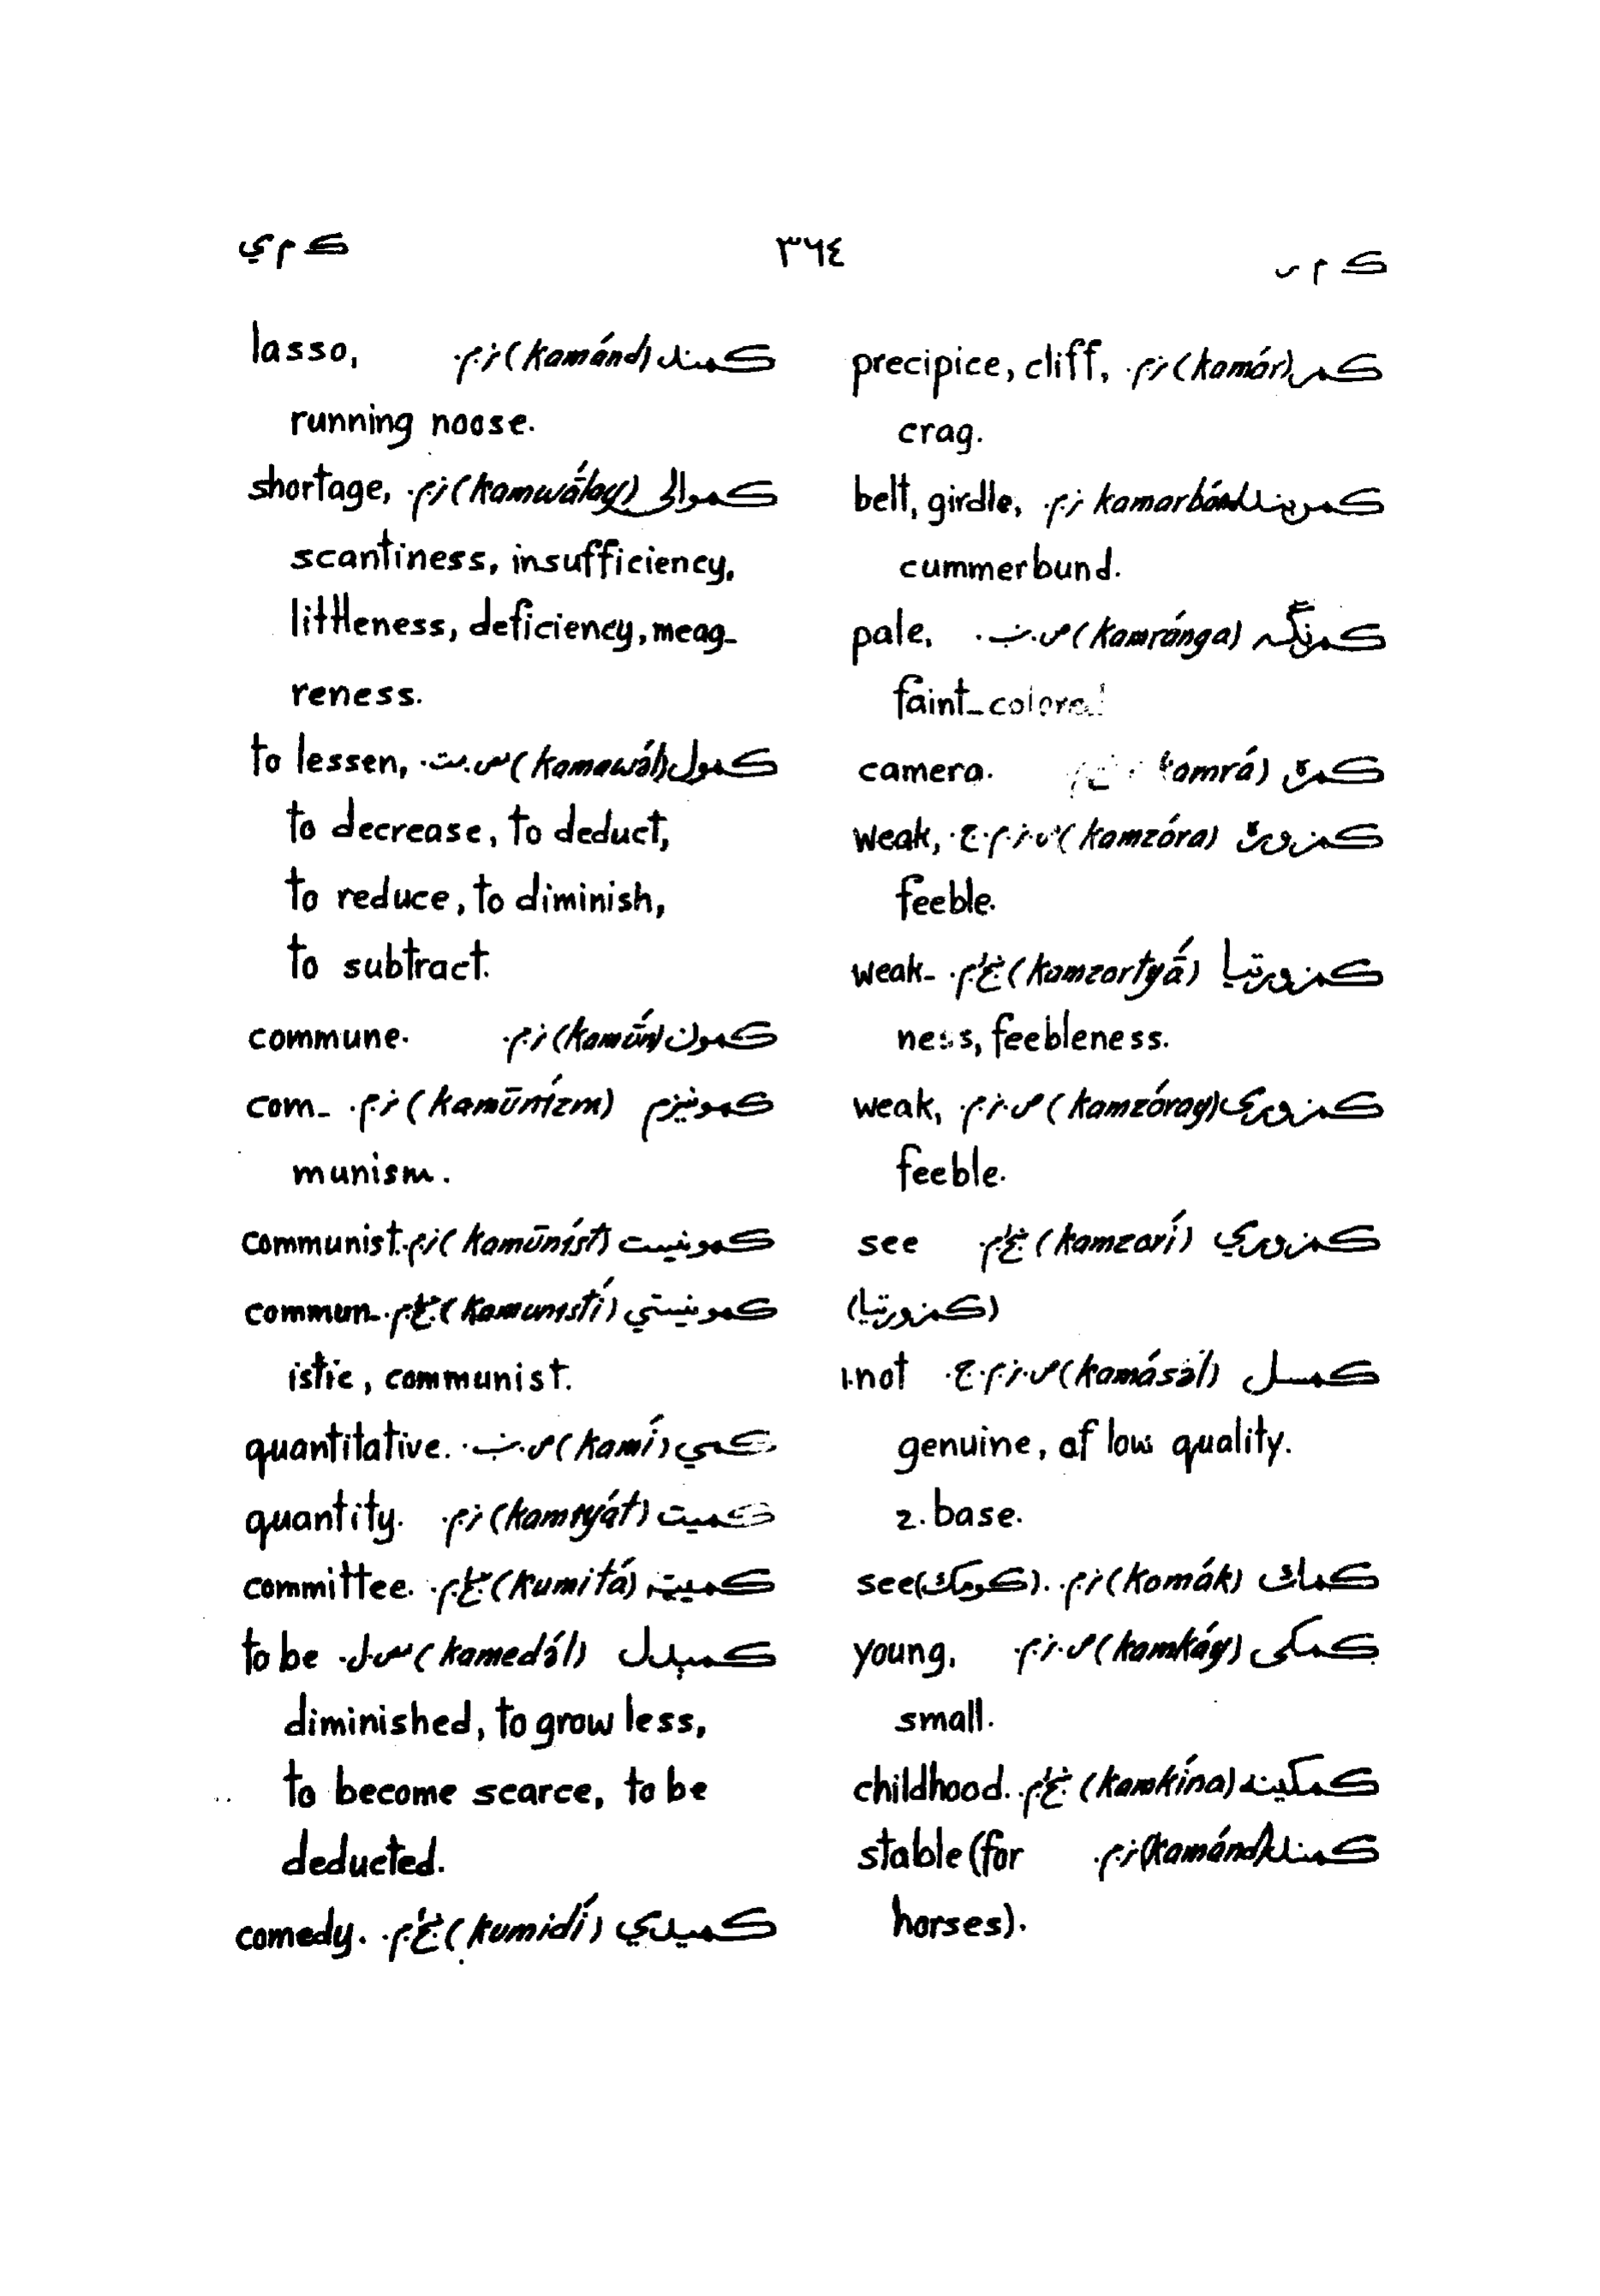 ک م ر
٣٦٤
ک م ي
کمر (kamár) ن.م. precipice, cliff,
crag.
کمربند kamarbánd ن.م. belt, girdle,
cummerbund.
کمرنګه (kamránga) ص.ب. pale,
faint-colored
کمرې amrá) camera.
کمزوره (kamzóra) ص.ن.م.ج. weak,
feeble.
کمزورتيا (kamzortyā́) غ.م. weak-
ness, feebleness.
کمزورى (kamzóray) ص.ن.م. weak,
feeble.
کمزوري (kamzorí) غ.م. see
(کمزورتيا)
کمسل (kamásə́l) ص.ن.م.ج. 1.not
genuine, of low quality.
2. base.
کماك (komák) ن.م. see(کومك).
کمکى (kamkáy) ص.ن.م. young,
small.
کمکينه (kamkína) غ.م. childhood.
کمند (kamánd) ن.م. stable (for
horses).
کمند (kamánd) ن.م. lasso,
running noose.
کموالى (kamwā́lay) ن.م. shortage,
scantiness, insufficiency,
littleness, deficiency, meag-
reness.
کمول (kamawə́l) س.مت. to lessen,
to decrease, to deduct,
to reduce, to diminish,
to subtract.
کمون (kamū́n) ن.م. commune.
کمونيزم (kamūnízm) ن.م. com-
munism.
کمونيست (kamūníst) ن.م. communist.
کمونيستي (kamunistí) غ.م. commun-
istic, communist.
کمي (kamí) ص.ب. quantitative.
کميت (kamiyát) ن.م. quantity.
کميټه (kumitá) غ.م. committee.
کمېدل (kamedə́l) س.ل. to be
diminished, to grow less,
to become scarce, to be
deducted.
کميدي (kumidí) غ.م. comedy.